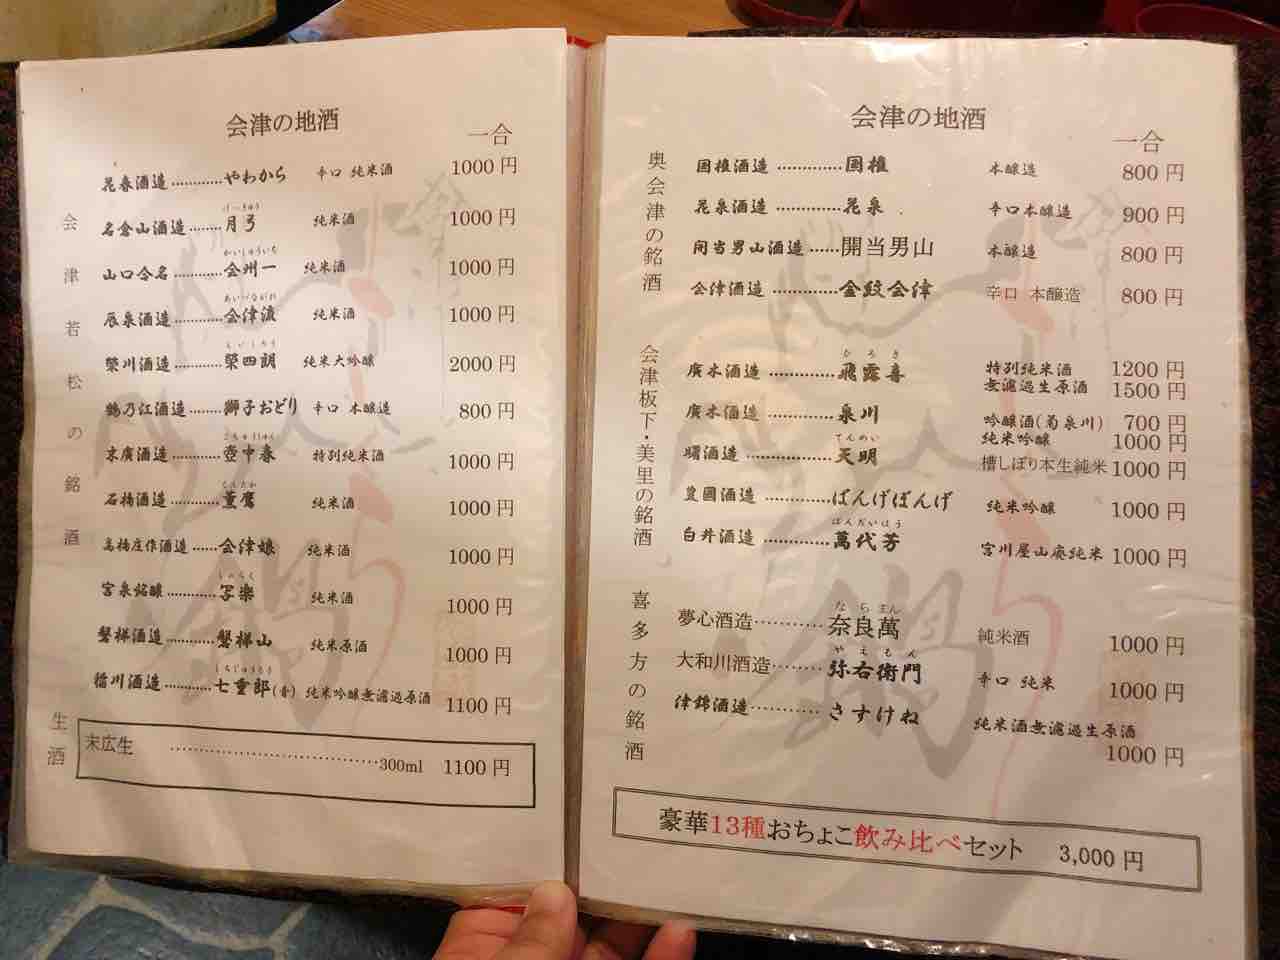 会津の地酒
一合
会津若松の銘酒
花春酒造…………やわから 辛口 純米酒 1000円
名倉山酒造……月弓 純米酒 1000円
げっきゅう
山口合名…………会州一 純米酒 1000円
かいしゅういち
辰泉酒造…………会津流 純米酒 1000円
あいづながれ
榮川酒造…………榮四郎 純米大吟醸 2000円
えいしろう
鶴乃江酒造……獅子おどり 辛口 本醸造 800円
末廣酒造…………壺中春 特別純米酒 1000円
こちゅうしゅん
石橋酒造…………薫鷹 純米酒 1000円
くんたか
高橋庄作酒造……会津娘 純米酒 1000円
宮泉銘醸…………写楽 純米酒 1000円
しゃらく
磐梯酒造…………磐梯山 純米原酒 1000円
稲川酒造…………七重郎(青) 純米吟醸無濾過原酒 1100円
しちじゅうろう
生酒
末広生 …………………………300ml 1100円
会津の地酒
一合
奥会津の銘酒
国権酒造 …………国権 本醸造 800円
花泉酒造 …………花泉 辛口本醸造 900円
開当男山酒造……開当男山 本醸造 800円
会津酒造 …………金紋会津 辛口 本醸造 800円
会津板下・美里の銘酒
廣木酒造 …………飛露喜 特別純米酒 1200円
ひろき
無濾過生原酒 1500円
廣木酒造 …………泉川 吟醸酒(菊泉川) 700円
純米吟醸 1000円
曙酒造 …………天明 槽しぼり本生純米 1000円
てんめい
豊國酒造 …………ばんげばんげ 純米吟醸 1000円
白井酒造 …………萬代芳 宮川屋山廃純米 1000円
ばんだいほう
喜多方の銘酒
夢心酒造…………奈良萬 純米酒 1000円
ならまん
大和川酒造………弥右衛門 辛口 純米 1000円
やえもん
津錦酒造…………さすけね 純米酒無濾過生原酒
1000円
豪華13種おちょこ飲み比べセット 3,000円